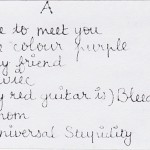 A
e to meet you
e colour purple
y friend
y red guitar is) Bleed
hom
niversal Stupidity